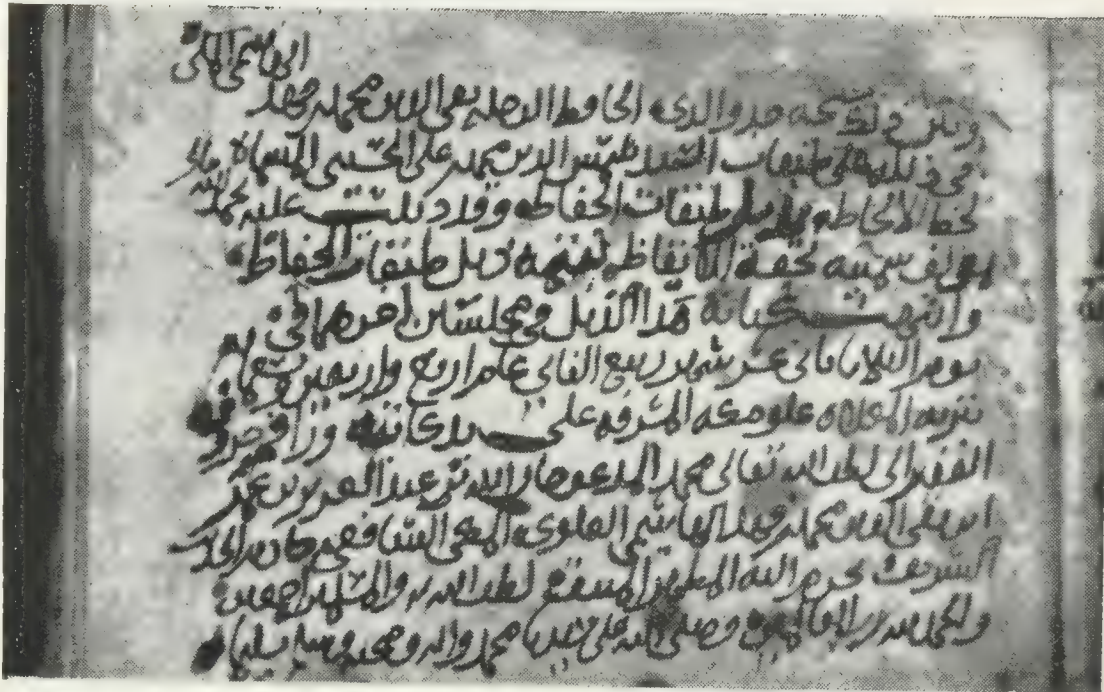 ابن فهد الهاشمي المكي
جد والدي الحافظ تقي الدين محمد بن فهد
في ذيله على طبقات السيد شمس الدين محمد بن علي الحسيني
لحظ الالحاظ بذيل طبقات الحفاظ وقد ذيلت عليه بحمد الله
بمؤلف سميته تحفة الايقاظ بتتمة ذيل طبقات الحفاظ
وانتهت كتابة هذا الذيل في مجلسين اخرهما في
يوم الثلاثاء ثاني عشر شهر ربيع الثاني عام اربع واربعين وتسعمائة
المعلاة علو مكة المشرفة على يد كاتبه
الفقير الى لطف الله تعالى محمد المدعو جار الله بن عبد العزيز بن عمر
ابن تقي الدين محمد بن فهد الهاشمي العلوي المكي الشافعي خادم الحديث
الشريف بحرم الله المطهر لطف الله به والمسلمين اجمعين
والحمد لله رب العالمين وصلى الله على سيدنا محمد واله وصحبه وسلم تسليما